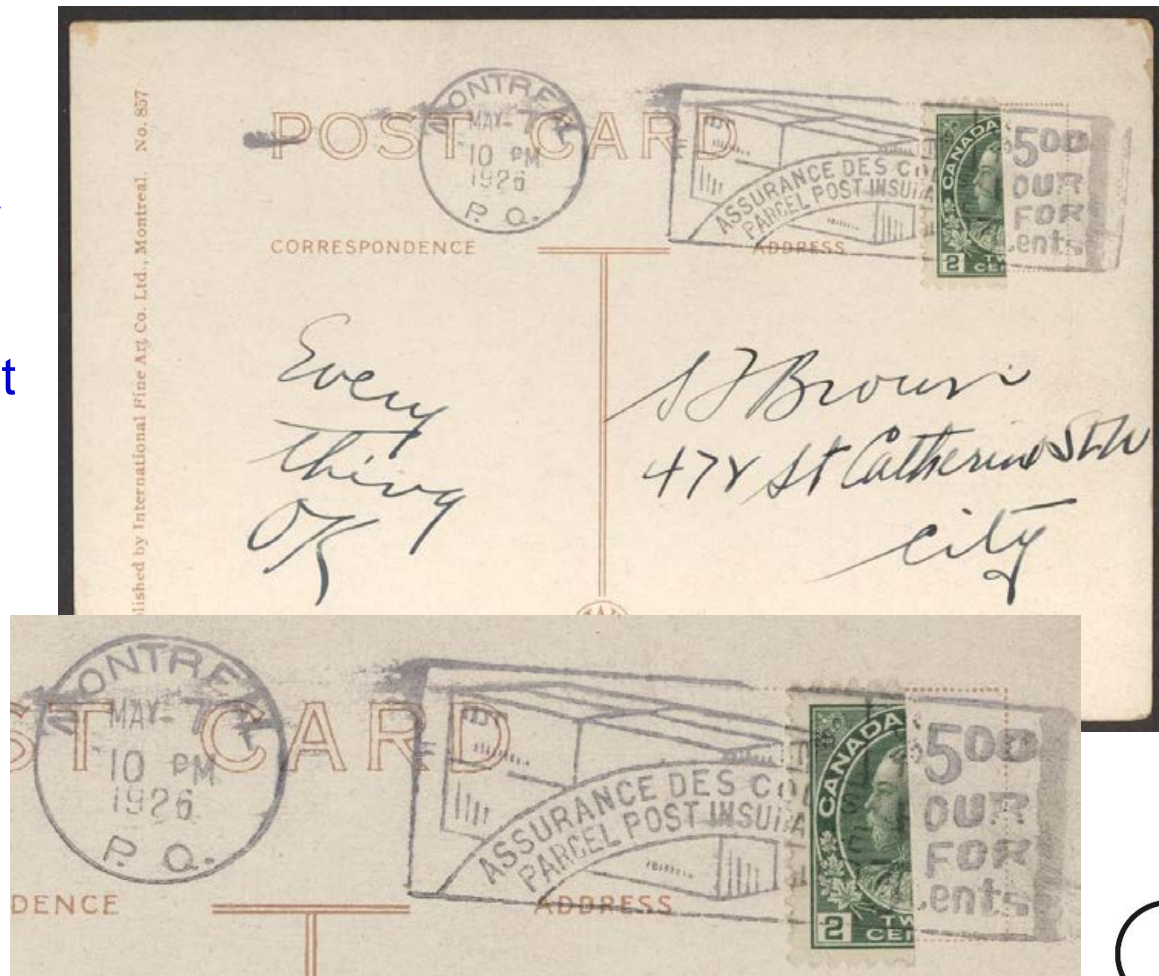 t
Published by International Fine Art Co. Ltd., Montreal. No. 857
POST CARD
MONTREAL
MAY 7
10 PM
1926
P. Q.
ASSURANCE DES
PARCEL POST
CANADA
2
500
OUR
FOR
cents
CORRESPONDENCE
ADDRESS
Every
thing
OK
Brown
St Catherine St W
City
MONTREAL
MAY 7
10 PM
1926
P. Q.
ST CARD
ASSURANCE DES
PARCEL POST
CANADA
2
500
OUR
FOR
cents
DENCE
ADDRESS